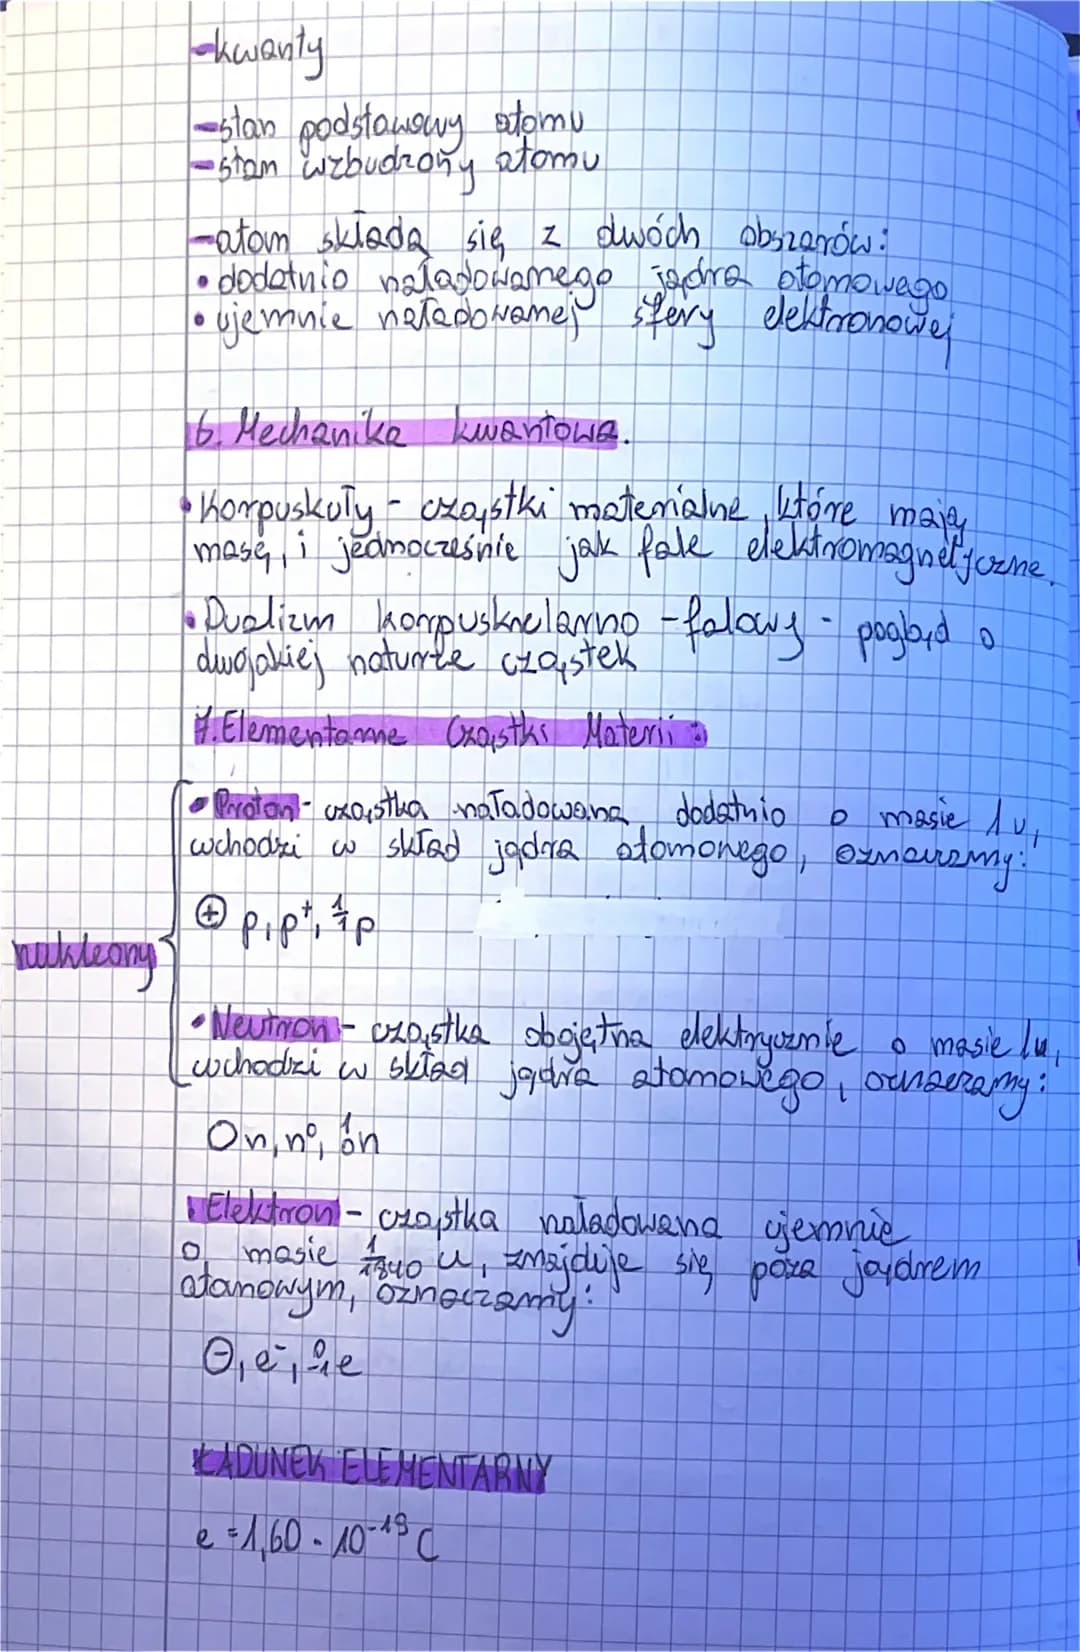 -kwanty
-stan podstawowy atomu
-stan wzbudzony atomu
-atom składa się z dwóch obszarów:
• dodatnio naładowanego jądra atomowego
• ujemnie naładowanej sfery elektronowej
6. Mechanika kwantowa.
• Korpuskuły - cząstki materialne, które mają
masę, i jednocześnie jak fale elektromagnetyczne.
• Dualizm korpuskularno - falowy - pogląd o
dwojakiej naturze cząstek
7. Elementarne Cząstki Materii:
• Proton - cząstka naładowana dodatnio o masie 1u,
wchodzi w skład jądra atomowego, oznaczamy:
⊕ p, p⁺, ¹₁p
nukleony
• Neutron - cząstka obojętna elektrycznie o masie 1u,
wchodzi w skład jądra atomowego, oznaczamy:
O n, n⁰, ¹₀n
• Elektron - cząstka naładowana ujemnie
o masie 1/1840 u, znajduje się poza jądrem
atomowym, oznaczamy:
⊖, e⁻, ⁰₋₁e
ŁADUNEK ELEMENTARNY
e = 1,60 · 10⁻¹⁹ C